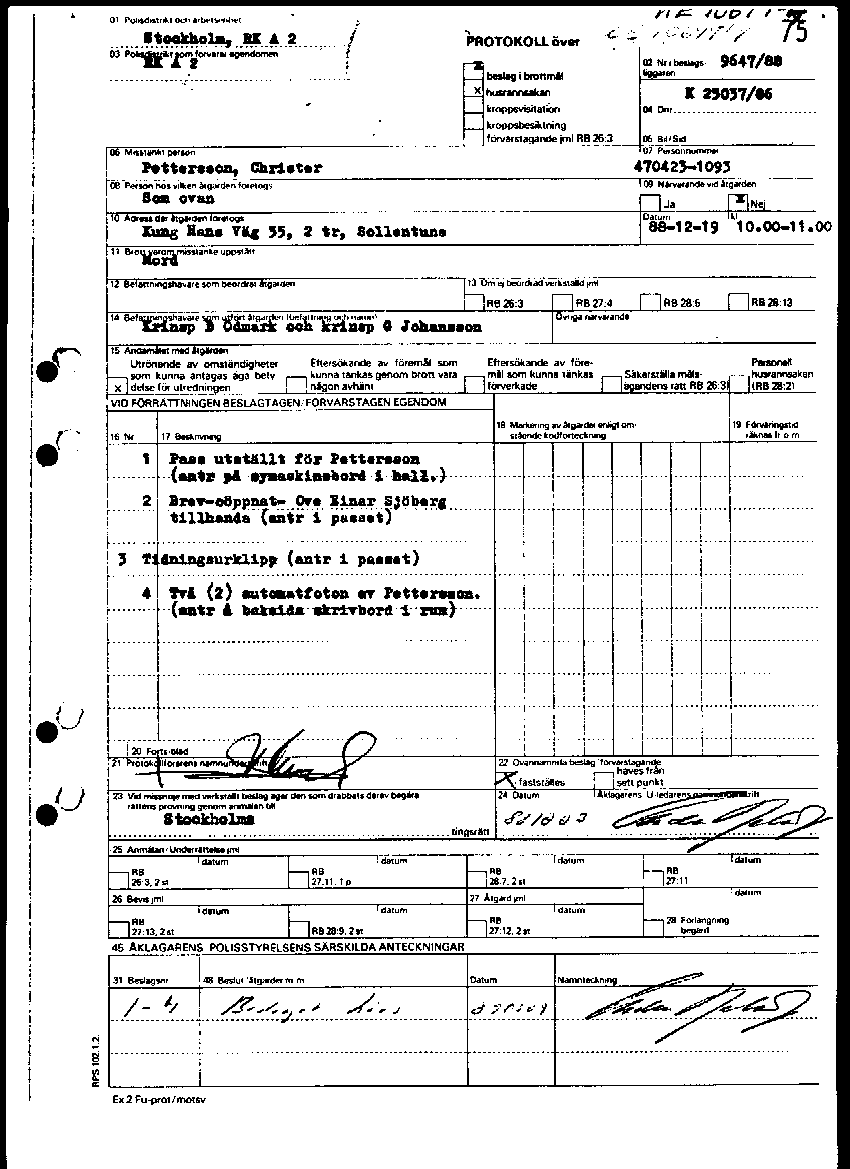 01 Polisdistrikt och arbetsenhet
Stockholm, RK A 2
03 Polisdistrikt som förvarar egendomen
RK A 2
PROTOKOLL över
75
X beslag i brottmål
X husrannsakan
kroppsvisitation
kroppsbesiktning
förvarstagande jml RB 26:3
02 Nr i beslags-
liggaren
9647/88
K 25037/86
04 Dnr
05 Bil/Sid
06 Misstänkt person
Pettersson, Christer
07 Personnummer
470423-1093
08 Person hos vilken åtgärden företogs
Som ovan
09 Närvarande vid åtgärden
Ja
X Nej
10 Adress där åtgärden företogs
Kung Hans Väg 55, 2 tr, Sollentuna
Datum
88-12-19
Kl
10.00-11.00
11 Brott varom misstanke uppstått
Mord
12 Befattningshavare som beordrat åtgärden
13 Om ej beordrad verkställd jml
RB 26:3
RB 27:4
RB 28:5
RB 28:13
14 Befattningshavare som utfört åtgärden (befattning och namn)
Krinsp B Ödmark och krinsp G Johansson
Övriga närvarande
15 Ändamålet med åtgärden
Utrönande av omständigheter
som kunna antagas äga bety
X delse för utredningen
Eftersökande av föremål som
kunna tänkas genom brott vara
någon avhänt
Eftersökande av före-
mål som kunna tänkas
förverkade
Säkerställa måls-
ägandens rätt RB 26:3
Personell
husrannsakan
(RB 28:2)
VID FÖRRÄTTNINGEN BESLAGTAGEN/FÖRVARSTAGEN EGENDOM
16 Nr
17 Beskrivning
18 Markering av åtgärder enligt om-
stående kodförteckning
19 Förvaringstid
räknas fr o m
1 Pass utställt för Pettersson
(antr på symaskinsbord i hall.)
2 Brev-oöppnat- Ove Einar Sjöberg
tillhanda (antr i passet)
3 Tidningsurklipp (antr i passet)
4 Två (2) automatfoton av Pettersson.
(antr å baksida skrivbord i rum)
20 Forts blad
21 Protokollförarens namnunderskrift
22 Ovannämnda beslag/förvarstagande
X fastställes
häves från
sett punkt
23 Vid missnöje med verkställt beslag äger den som drabbats därav begära
rättens prövning genom anmälan till
Stockholms
tingsrätt
24 Datum
Åklagarens/U-ledarens namnunderskrift
25 Anmälan/Underrättelse jml
datum
datum
datum
datum
RB
26:3, 2 st
RB
27:11, 1 p
RB
28:7, 2 st
RB
27:11
26 Bevis jml
27 Åtgärd jml
datum
datum
datum
datum
RB
27:13, 2 st
RB 28:9, 2 st
RB
27:12, 2 st
28 Förlängning
begärd
46 ÅKLAGARENS/POLISSTYRELSENS SÄRSKILDA ANTECKNINGAR
31 Beslagsnr
48 Beslut/åtgärder m m
Datum
Namnteckning
1-4
Beslaget häves
RPS 102.1.2.
Ex 2 Fu-prot/motsv